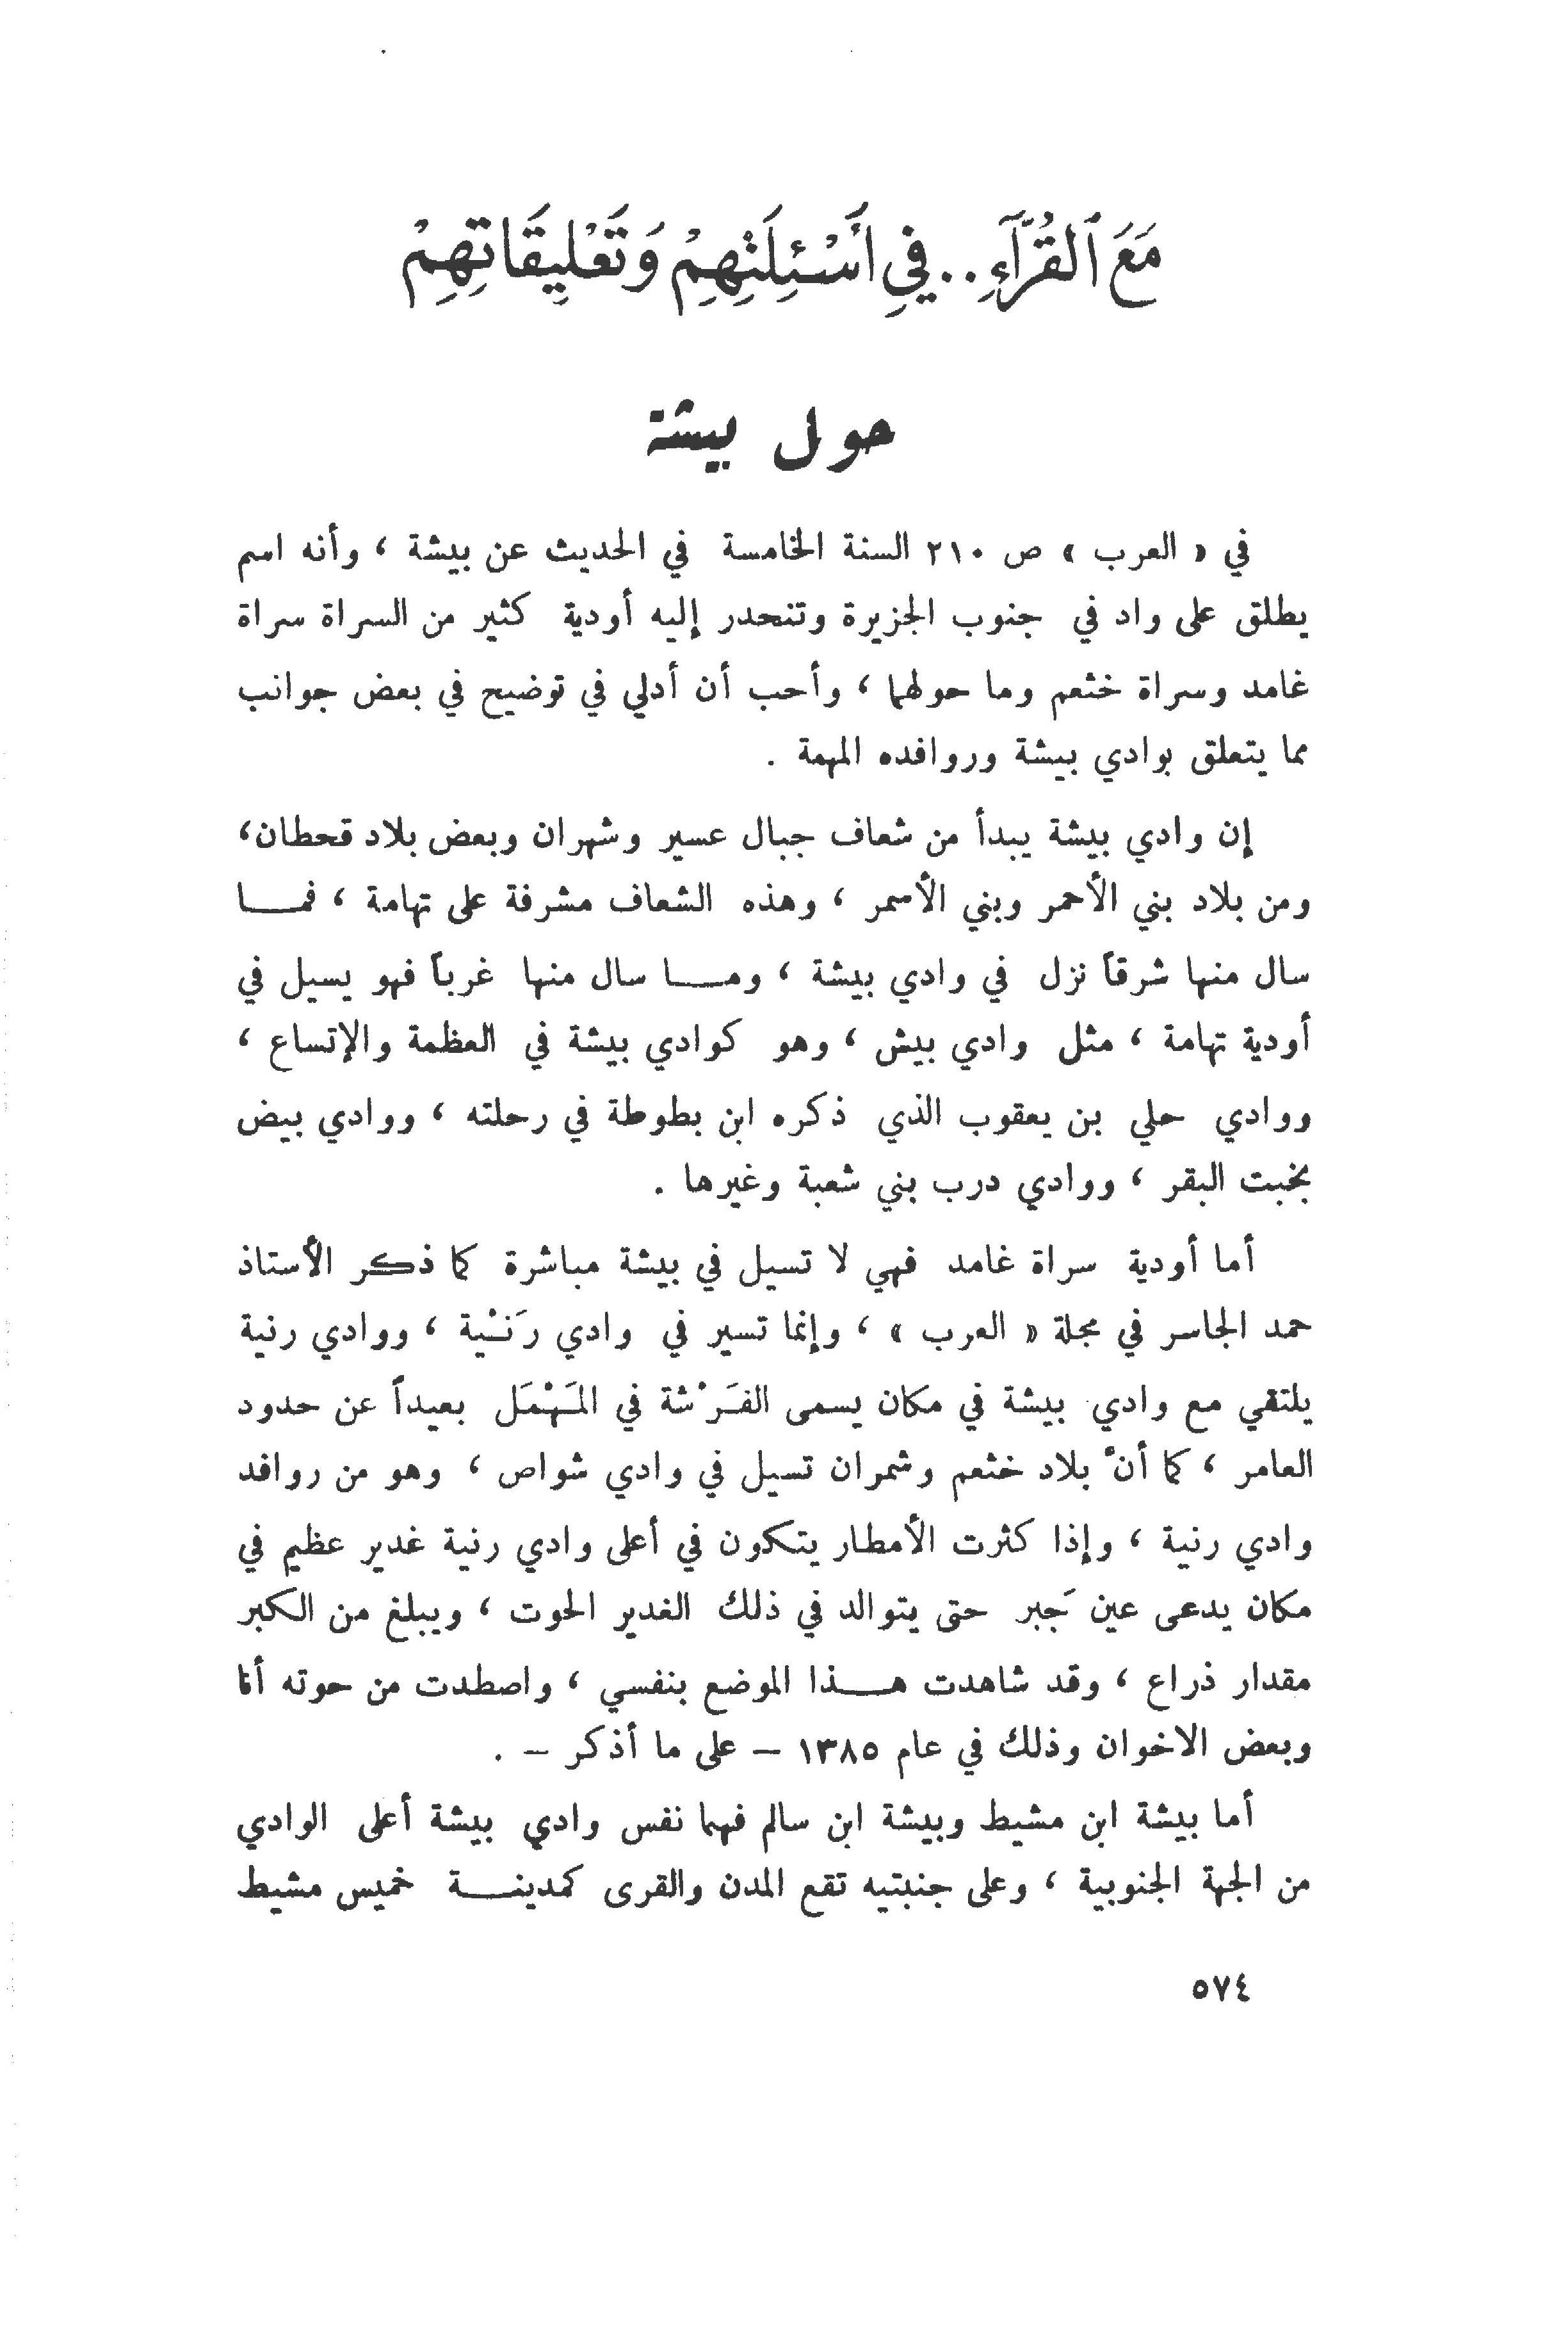 مَعَ ٱلقُرَّآءِ..فِي أَسْئِلَتِهِمْ وَتَعْلِيقَاتِهِمْ
حول بيشة
في « العرب » ص ٢١٠ السنة الخامسة في الحديث عن بيشة ، وأنه اسم
يطلق على واد في جنوب الجزيرة وتنحدر إليه أودية كثير من السراة سراة
غامد وسراة خثعم وما حولهما ، وأحب أن أدلي في توضيح في بعض جوانب
مما يتعلق بوادي بيشة وروافده المهمة .
إن وادي بيشة يبدأ من شعاف جبال عسير وشهران وبعض بلاد قحطان،
ومن بلاد بني الأحمر وبني الأسمر ، وهذه الشعاف مشرفة على تهامة ، فمــا
سال منها شرقاً نزل في وادي بيشة ، ومــا سال منها غرباً فهو يسيل في
أودية تهامة ، مثل وادي بيش ، وهو كوادي بيشة في العظمة والإتساع ،
ووادي حلي بن يعقوب الذي ذكره ابن بطوطة في رحلته ، ووادي بيض
بخبت البقر ، ووادي درب بني شعبة وغيرها .
أما أودية سراة غامد فهي لا تسيل في بيشة مباشرة كما ذكر الأستاذ
حمد الجاسر في مجلة « العرب » ، وإنما تسير في وادي رَنْية ، ووادي رنية
يلتقي مع وادي بيشة في مكان يسمى الفَرْشة في المَهْمَل بعيداً عن حدود
العامر ، كما أنْ بلاد خثعم وشمران تسيل في وادي شواص ، وهو من روافد
وادي رنية ، وإذا كثرت الأمطار يتكون في أعلى وادي رنية غدير عظيم في
مكان يدعى عين جَبر حتى يتوالد في ذلك الغدير الحوت ، ويبلغ من الكبر
مقدار ذراع ، وقد شاهدت هــذا الموضع بنفسي ، واصطدت من حوته أنا
وبعض الاخوان وذلك في عام ١٣٨٥ – على ما أذكر – .
أما بيشة ابن مشيط وبيشة ابن سالم فهما نفس وادي بيشة أعلى الوادي
من الجهة الجنوبية ، وعلى جنبتيه تقع المدن والقرى كمدينــة خميس مشيط
٥٧٤